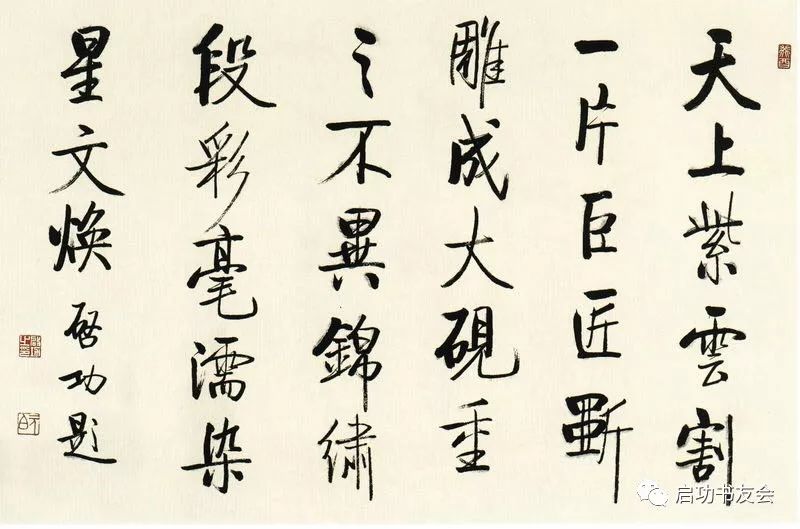 天上紫雲割
一片巨匠斲
雕成大硯重
之不異錦繡
段彩毫濡染
星文煥 啓功題
元白
启功书友会